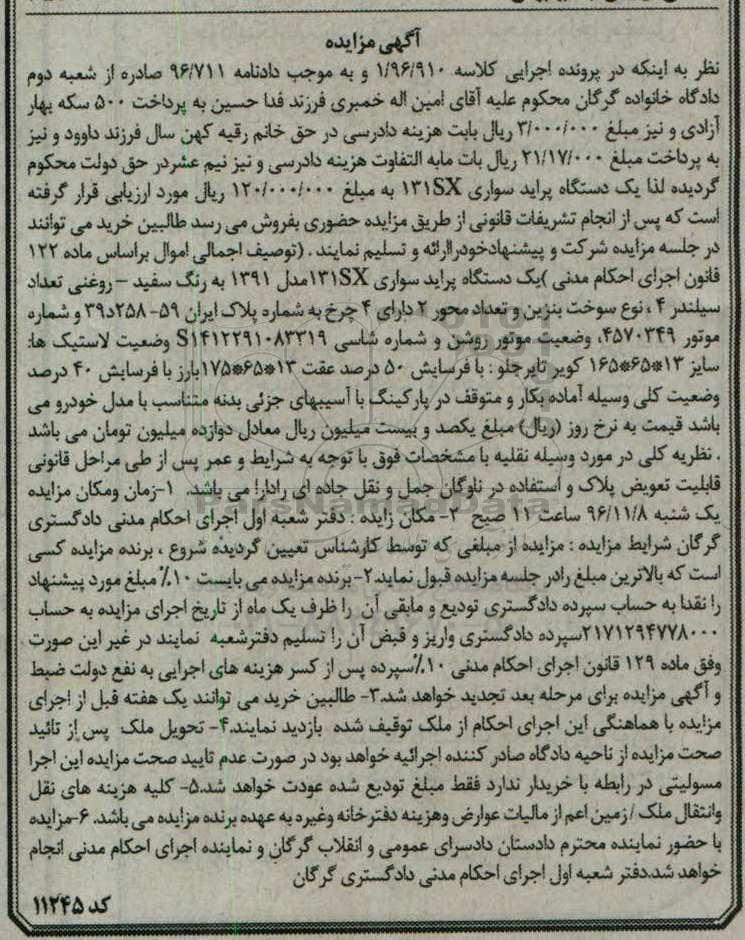 آگهی مزایده
نظر به اینکه در پرونده اجرایی کلاسه ۱/۹۶/۹۱۰ و به موجب دادنامه ۹۶/۷۱۱ صادره از شعبه دوم
دادگاه خانواده گرگان محکوم علیه آقای امین اله خمبری فرزند فدا حسین به پرداخت ۵۰۰ سکه بهار
آزادی و نیز مبلغ ۳/۰۰۰/۰۰۰ ریال بابت هزینه دادرسی در حق خانم رقیه کهن سال فرزند داوود و نیز
به پرداخت مبلغ ۲۱/۱۷/۰۰۰ ریال بات مابه التفاوت هزینه دادرسی و نیز نیم عشردر حق دولت محکوم
گردیده لذا یک دستگاه پراید سواری ۱۳۱SX به مبلغ ۱۲۰/۰۰۰/۰۰۰ ریال مورد ارزیابی قرار گرفته
است که پس از انجام تشریفات قانونی از طریق مزایده حضوری بفروش می رسد طالبین خرید می توانند
در جلسه مزایده شرکت و پیشنهادخودراارائه و تسلیم نمایند . (توصیف اجمالی اموال براساس ماده ۱۲۲
قانون اجرای احکام مدنی )یک دستگاه پراید سواری ۱۳۱SXمدل ۱۳۹۱ به رنگ سفید – روغنی تعداد
سیلندر ۴ ، نوع سوخت بنزین و تعداد محور ۲ دارای ۴ چرخ به شماره پلاک ایران ۵۹- ۲۵۸د۳۹ و شماره
موتور ۴۵۷۰۳۴۹، وضعیت موتور روشن و شماره شاسی S۱۴۱۲۲۹۱۰۸۳۳۱۹ وضعیت لاستیک ها:
سایز ۱۳*۶۵*۱۶۵ کویر تایرجلو : با فرسایش ۵۰ درصد عقت ۱۳*۶۵*۱۷۵بارز با فرسایش ۴۰ درصد
وضعیت کلی وسیله آماده بکار و متوقف در پارکینگ با آسیبهای جزئی بدنه متناسب با مدل خودرو می
باشد قیمت به نرخ روز (ریال) مبلغ یکصد و بیست میلیون ریال معادل دوازده میلیون تومان می باشد
. نظریه کلی در مورد وسیله نقلیه با مشخصات فوق با توجه به شرایط و عمر پس از طی مراحل قانونی
قابلیت تعویض پلاک و استفاده در ناوگان حمل و نقل جاده ای رادارا می باشد. ۱-زمان ومکان مزایده
یک شنبه ۹۶/۱۱/۸ ساعت ۱۱ صبح ۲- مکان زایده : دفتر شعبه اول اجرای احکام مدنی دادگستری
گرگان شرایط مزایده : مزایده از مبلغی که توسط کارشناس تعیین گردیده شروع ، برنده مزایده کسی
است که بالاترین مبلغ رادر جلسه مزایده قبول نماید.۲-برنده مزایده می بایست ۱۰٪ مبلغ مورد پیشنهاد
را نقدا به حساب سپرده دادگستری تودیع و مابقی آن را ظرف یک ماه از تاریخ اجرای مزایده به حساب
۲۱۷۱۲۹۴۷۷۸۰۰۰سپرده دادگستری واریز و قبض آن را تسلیم دفترشعبه نمایند در غیر این صورت
وفق ماده ۱۲۹ قانون اجرای احکام مدنی ۱۰٪سپرده پس از کسر هزینه های اجرایی به نفع دولت ضبط
و آگهی مزایده برای مرحله بعد تجدید خواهد شد.۳- طالبین خرید می توانند یک هفته قبل از اجرای
مزایده با هماهنگی این اجرای احکام از ملک توقیف شده بازدید نمایند.۴- تحویل ملک پس از تائید
صحت مزایده از ناحیه دادگاه صادر کننده اجرائیه خواهد بود در صورت عدم تایید صحت مزایده این اجرا
مسولیتی در رابطه با خریدار ندارد فقط مبلغ تودیع شده عودت خواهد شد.۵- کلیه هزینه های نقل
وانتقال ملک / زمین اعم از مالیات عوارض وهزینه دفترخانه وغیره به عهده برنده مزایده می باشد. ۶-مزایده
با حضور نماینده محترم دادستان دادسرای عمومی و انقلاب گرگان و نماینده اجرای احکام مدنی انجام
خواهد شد.دفتر شعبه اول اجرای احکام مدنی دادگستری گرگان
کد ۱۱۲۴۵